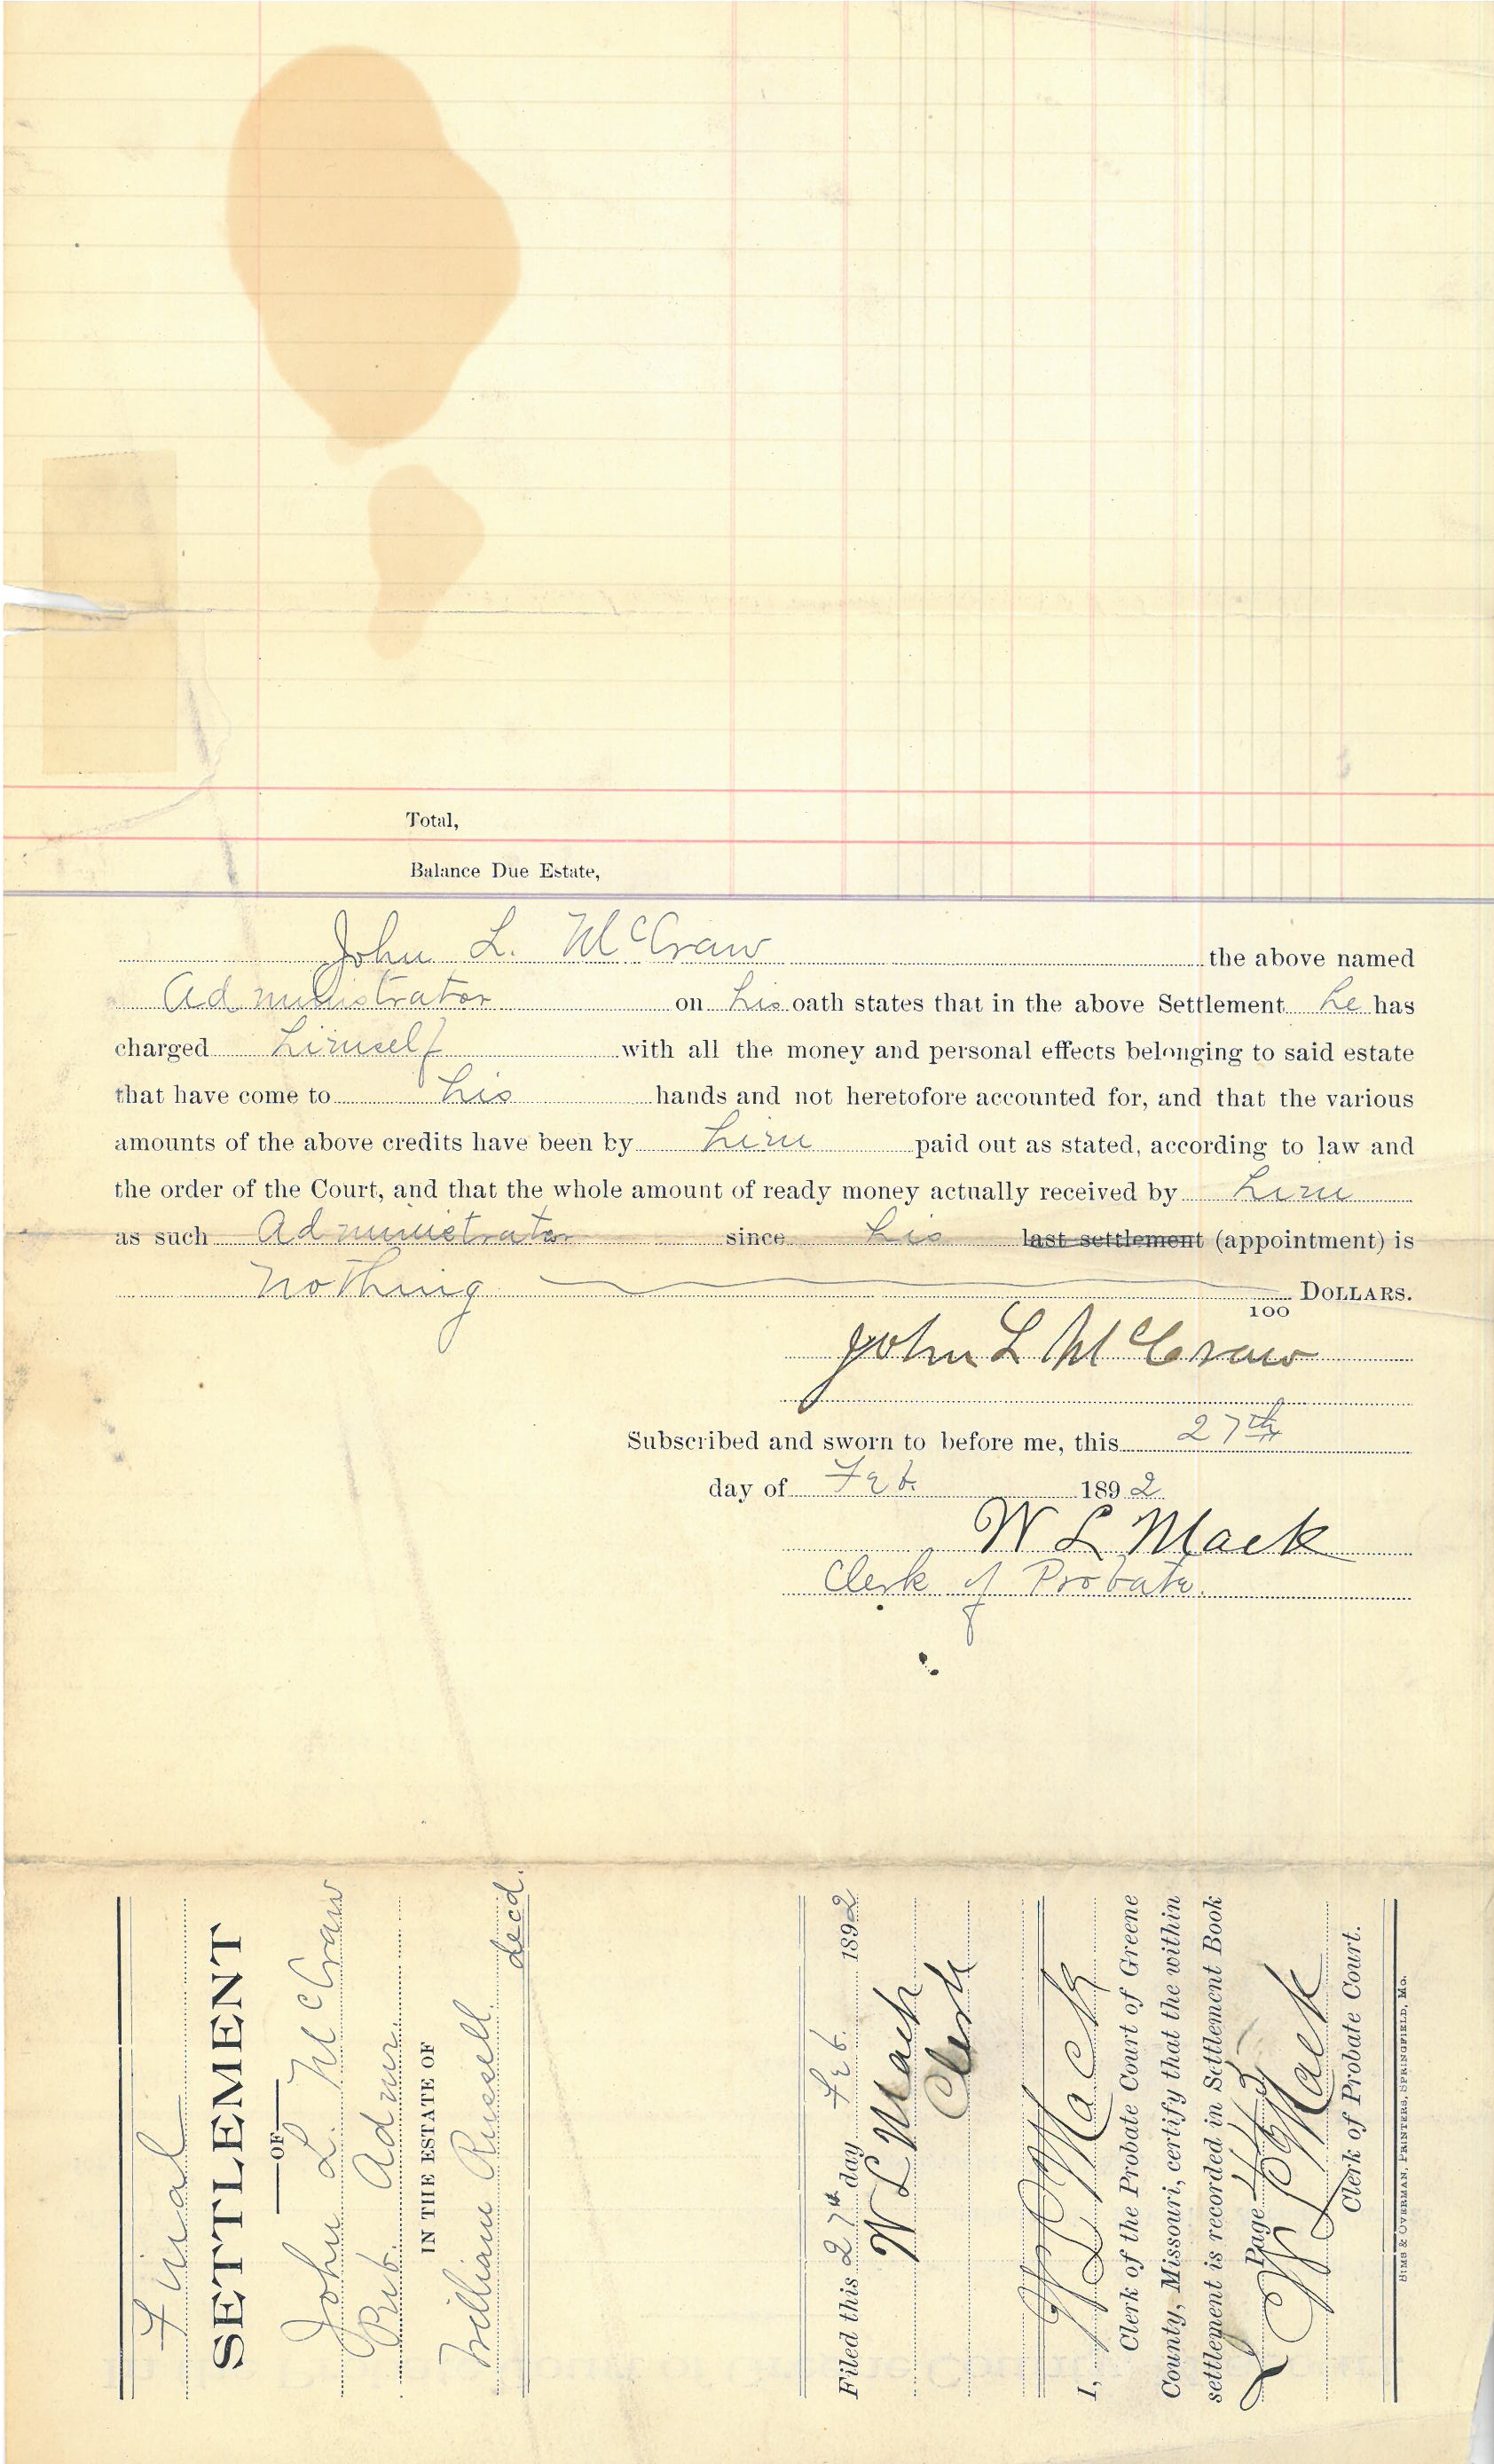 Total,
Balance Due Estate,
John L. McCraw the above named
Administrator on his oath states that in the above Settlement he has
charged himself with all the money and personal effects belonging to said estate
that have come to his hands and not heretofore accounted for, and that the various
amounts of the above credits have been by him paid out as stated, according to law and
the order of the Court, and that the whole amount of ready money actually received by him
as such Administrator since his last settlement (appointment) is
Nothing DOLLARS.
100
John L McCraw
Subscribed and sworn to before me, this 27th
day of Feb. 1892
W L Mack
Clerk of Probate.
Final
SETTLEMENT
OF
John L. McCraw
Pub. Admr.
IN THE ESTATE OF
William Russell
decd.
Filed this 27th day Feb. 1892
W L Mack
Clerk
I, W L Mack
Clerk of the Probate Court of Greene
County, Missouri, certify that the within
settlement is recorded in Settlement Book
Page
W L Mack
Clerk of Probate Court.
SIMS & OVERMAN, PRINTERS, SPRINGFIELD, MO.